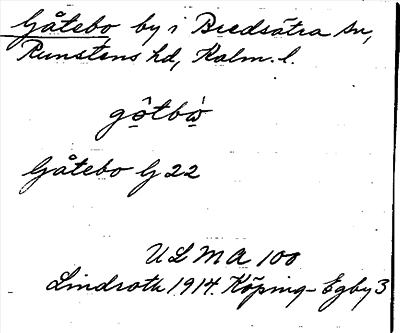 Gåtebo by i Bredsätra sn,
Runstens hd, Kalm. l.
gǫ̂tbὼ̣
Gåtebo G 22
ULMA 100
Lindroth 1914. Köping-Egby 3